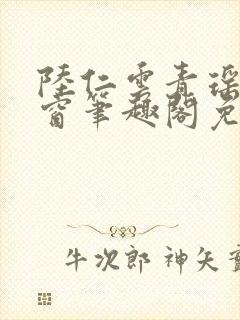 陸仁雲青瑶
窗筆趣閣免
牛次郎 神矢